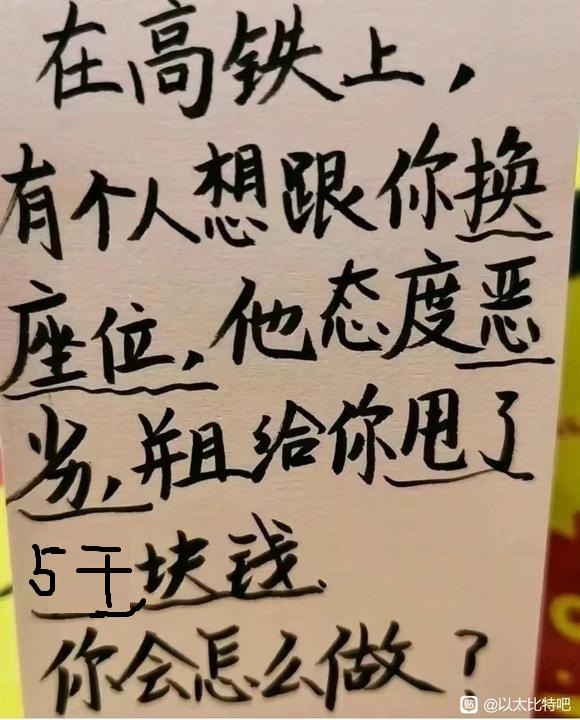 在高铁上，
有个人想跟你换
座位，他态度恶
劣，并且给你甩了
5干块钱
你会怎么做？
贴 @以太比特吧